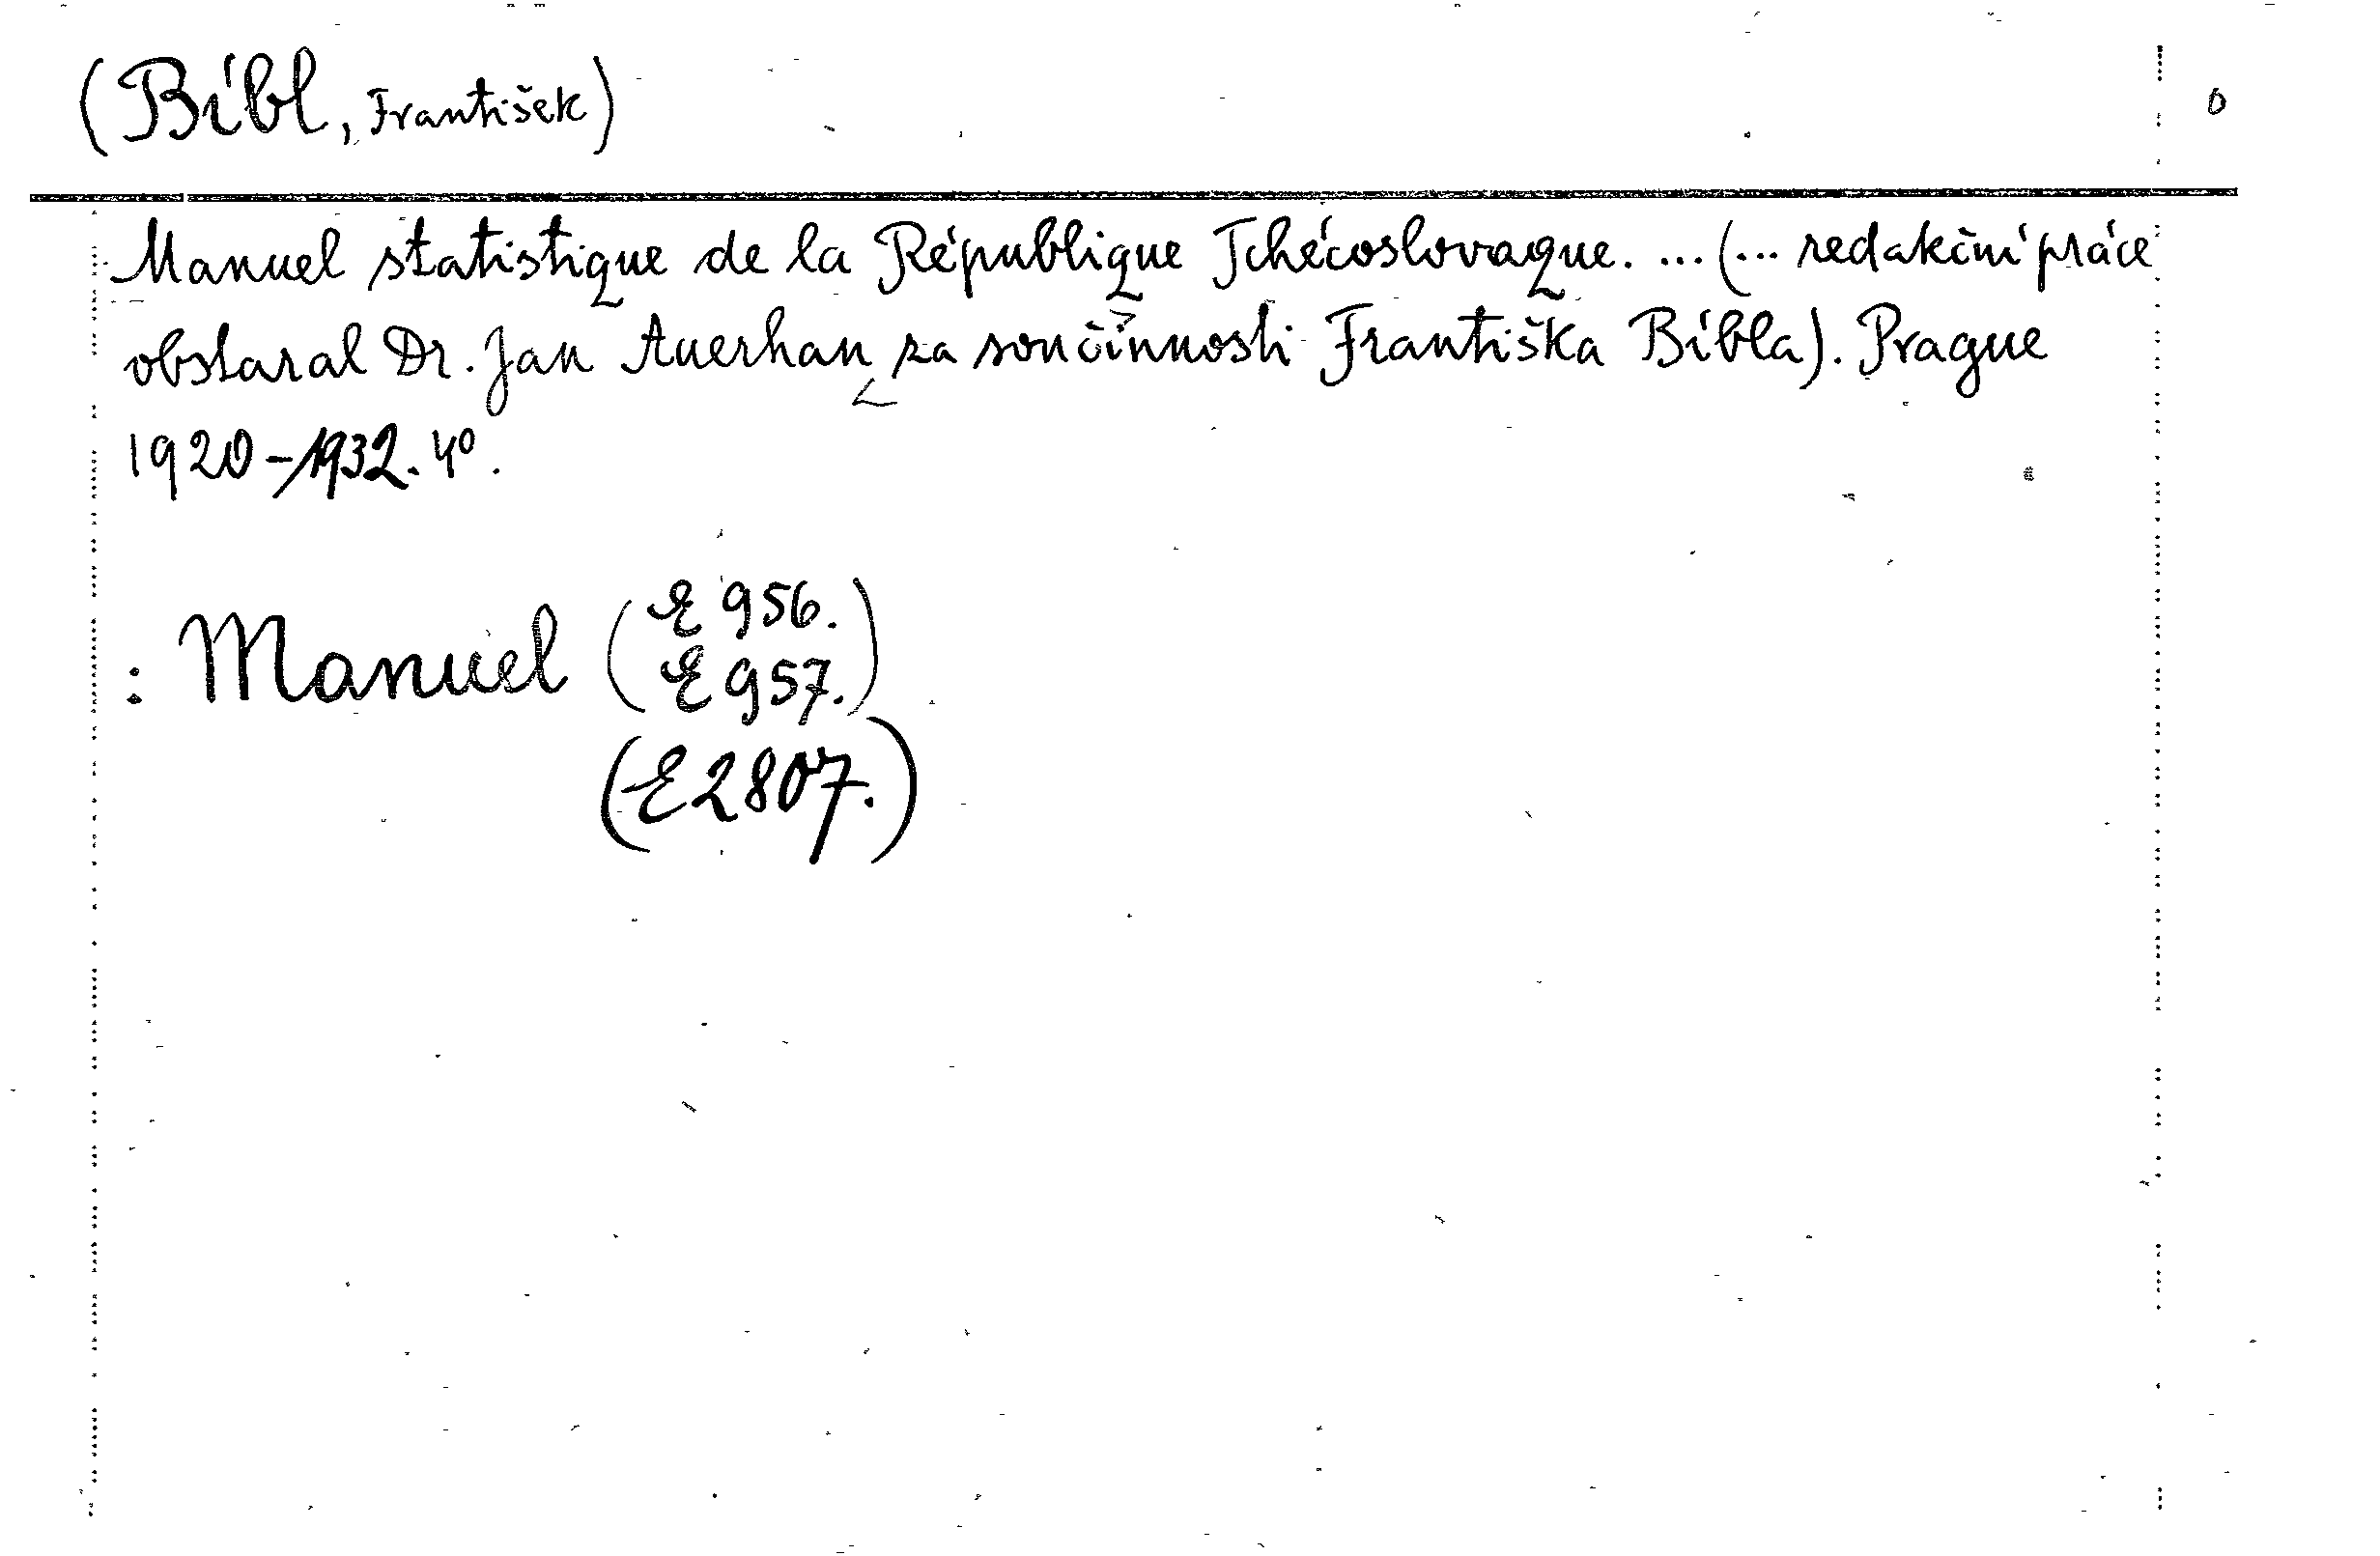 (Bíbl, František)
0
Manuel statistique de la République Tchécoslovaque. ... (... redakční práce
obstaral Dr. Jan Auerhan za součinnosti Františka Bíbla). Prague
1920-1932. 4°.
: Manuel (E 956.
E 957.)
(E 2807.)